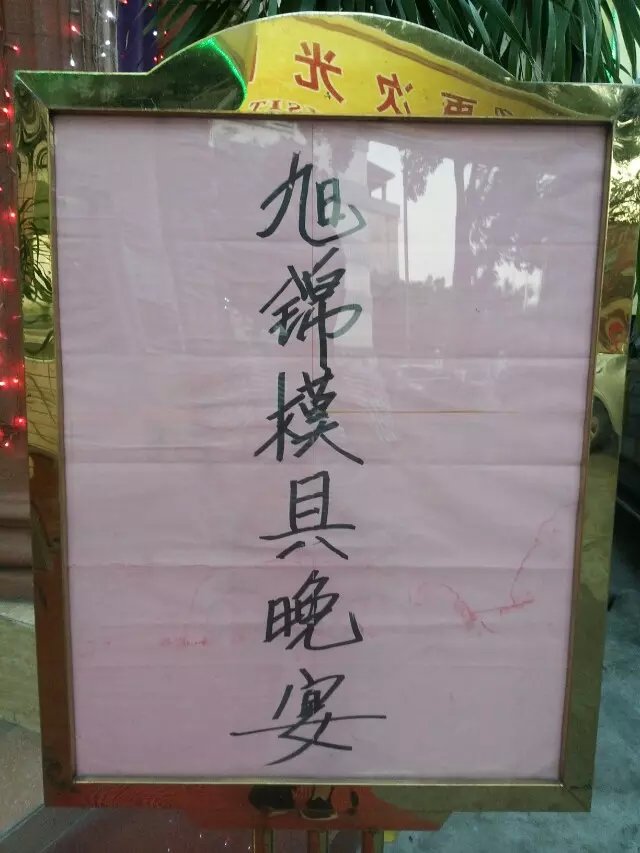 光次再
旭錦模具晚宴